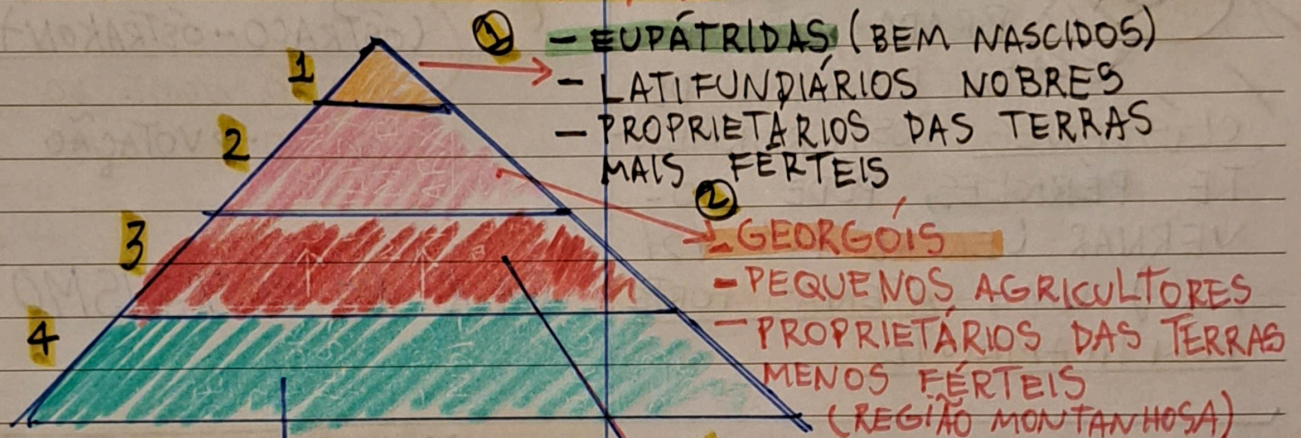 1
① - EUPÁTRIDAS (BEM NASCIDOS)
- LATIFUNDIÁRIOS NOBRES
- PROPRIETÁRIOS DAS TERRAS
MAIS FÉRTEIS
2
②
- GEORGÓIS
- PEQUENOS AGRICULTORES
- PROPRIETÁRIOS DAS TERRAS
MENOS FÉRTEIS
(REGIÃO MONTANHOSA)
3
4